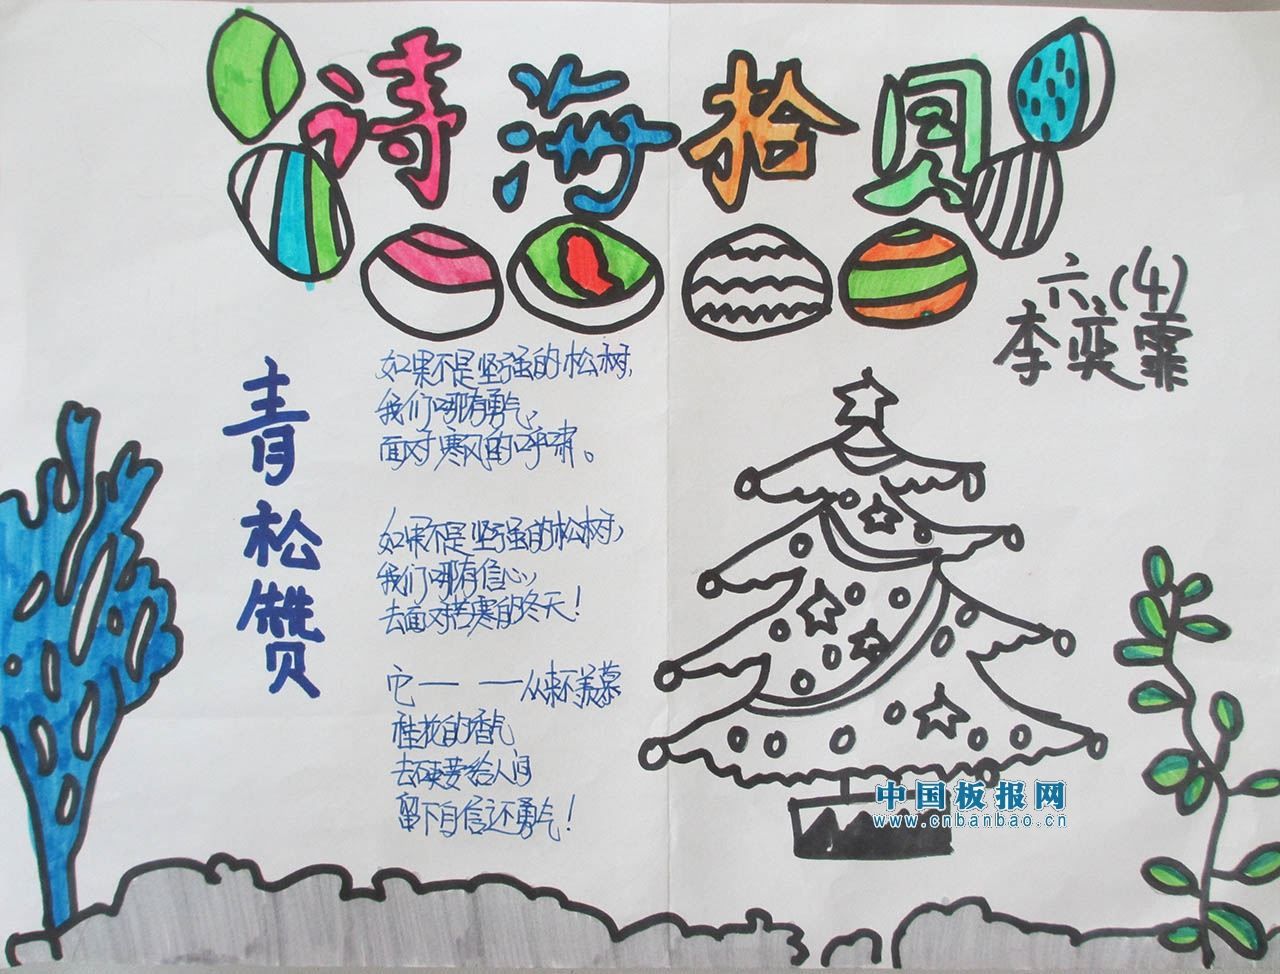 诗海拾贝
六.(4)
李奕霏
青松赞
如果不是坚强的松树,
我们哪有勇气,
面对寒风的呼啸。
如果不是坚强的松树,
我们哪有信心,
去面对苦寒的冬天!
它— —从来不羡慕
桂花的香气
去 要给人间
留下自信还勇气!
中国板报网
www.cnbanbao.cn